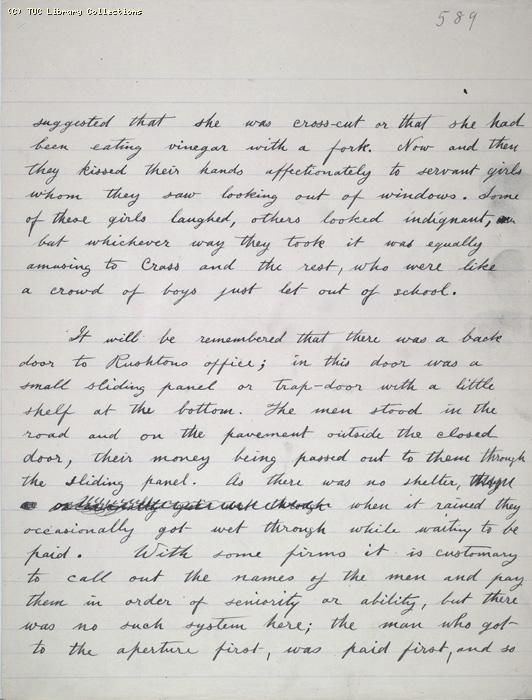 (C) TUC Library Collections
589
suggested that she was cross-cut or that she had
been eating vinegar with a fork. Now and then
they kissed their hands affectionately to servant girls
whom they saw looking out of windows. Some
of these girls laughed, others looked indignant,
but whichever way they took it was equally
amusing to Crass and the rest, who were like
a crowd of boys just let out of school.
It will be remembered that there was a back
door to Rushtons office; in this door was a
small sliding panel or trap-door with a little
shelf at the bottom. The men stood in the
road and on the pavement outside the closed
door, their money being passed out to them through
the sliding panel. As there was no shelter,
when it rained they
occasionally got wet through while waiting to be
paid. With some firms it is customary
to call out the names of the men and pay
them in order of seniority or ability, but there
was no such system here; the man who got
to the aperture first, was paid first, and so